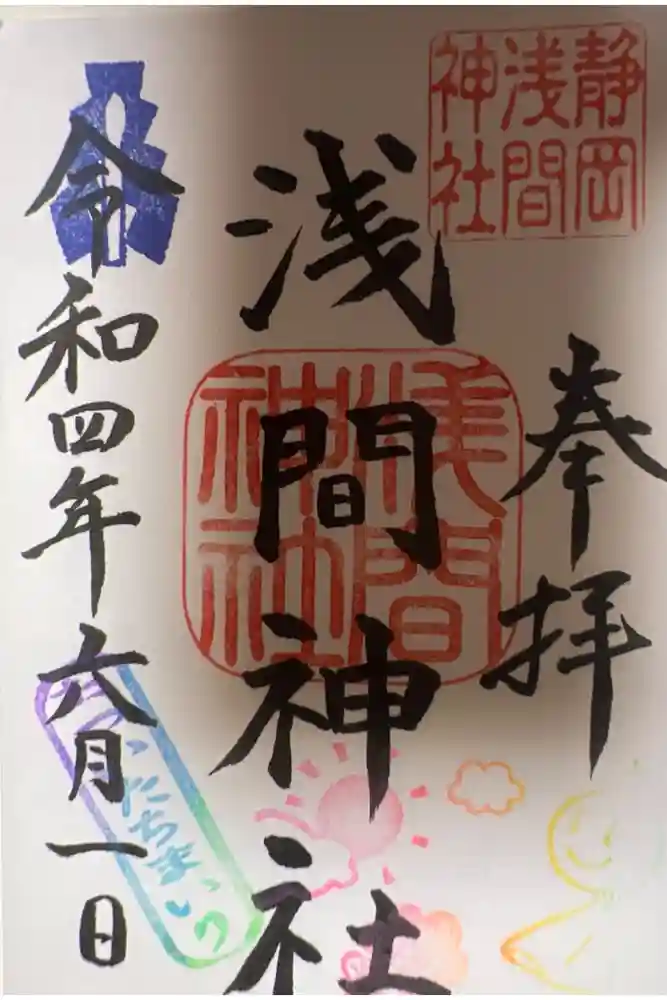 静岡
浅間
神社
奉拝
浅間神社
浅間
神社
令和四年六月一日
ついたちまいり